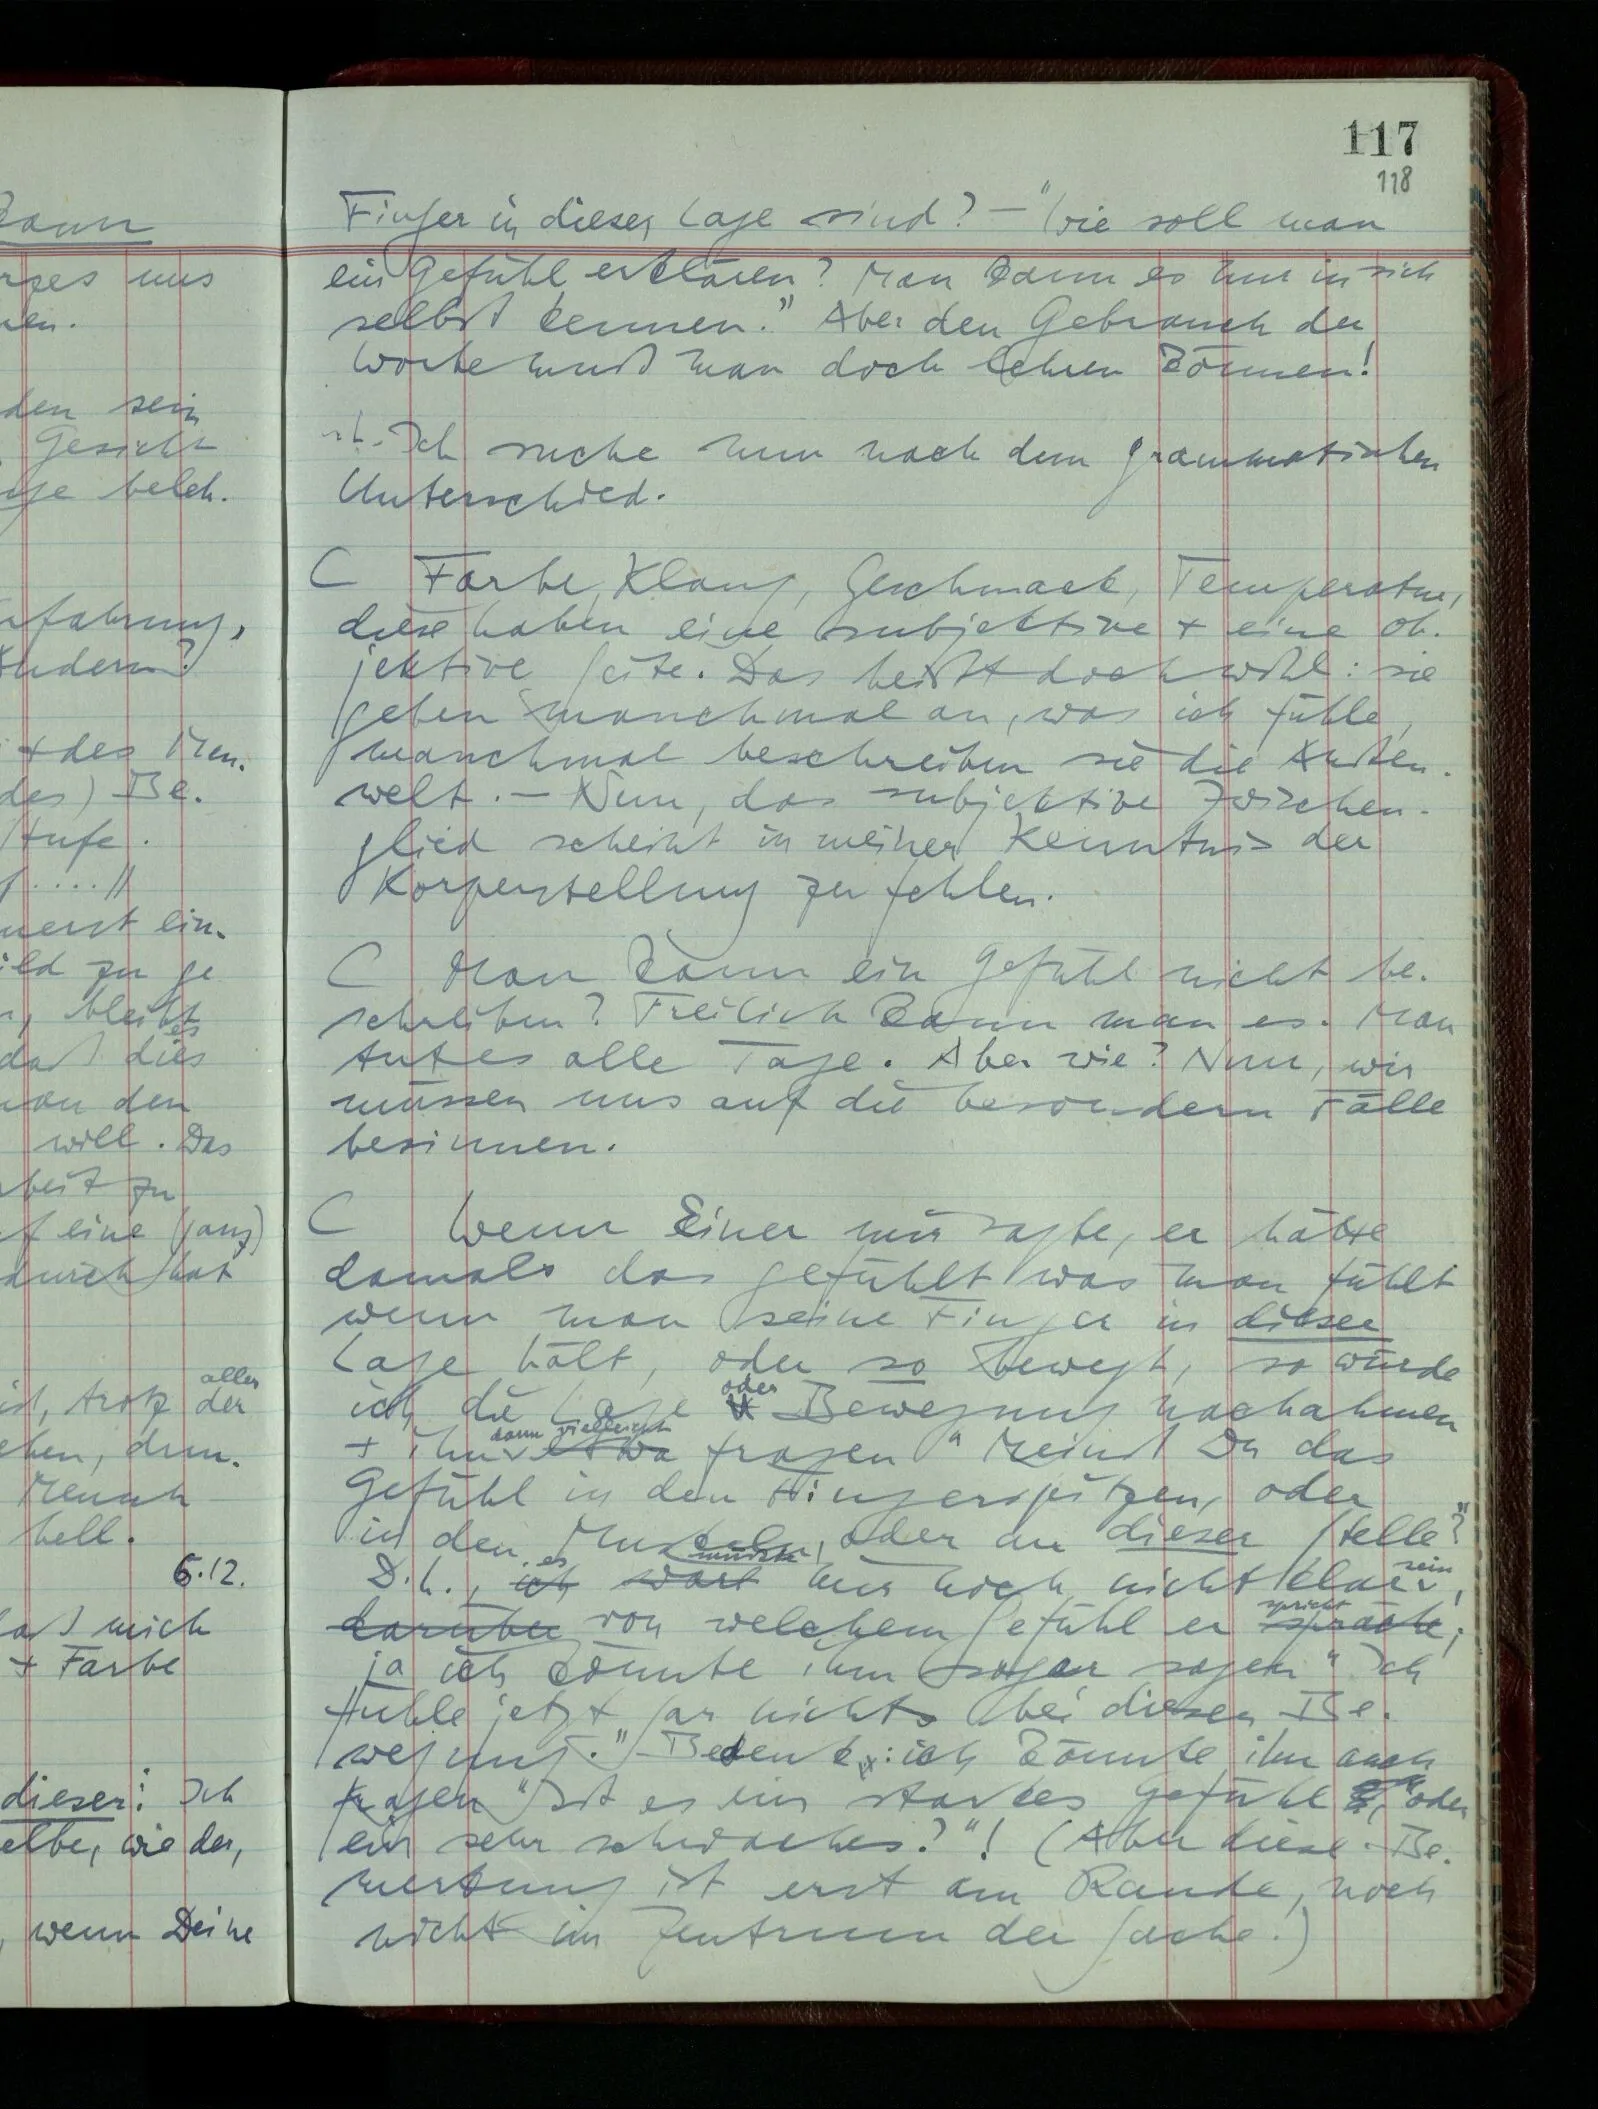 117
118
Finger in dieser Lage sind? – "Wie soll man
ein Gefühl erklären? Man kann es nur in sich
selbst kennen." Aber den Gebrauch der
Worte muß man doch lehren können!
Ich suche nun nach dem grammatischen
Unterschied.
C Farbe, Klang, Geschmack, Temperatur,
diese haben eine subjektive + eine ob-
jektive Seite. Das heißt doch wohl: sie
geben manchmal an, was ich fühle,
manchmal beschreiben sie die Außen-
welt. – Nun, das subjektive Zwischen-
glied scheint in meiner Kenntnis der
Körperstellung zu fehlen.
C Man kann ein Gefühl nicht be-
schreiben? Freilich kann man es. Man
tut es alle Tage. Aber wie? Nun, wir
müssen uns auf die besondern Fälle
besinnen.
C Wenn Einer mir sagte, er hätte
damals das gefühlt was man fühlt
wenn man seine Finger in dieser
Lage hält, oder so bewegt, so würde
ich die Lage oder Bewegung nachahmen
+ ihn dann vielleicht etwa fragen "Meinst Du das
Gefühl in den Fingerspitzen, oder
in den Muskeln, oder an dieser Stelle?"
D.h., ich es wäre müßte mir noch nicht klar sein,
darüber von welchem Gefühl er spräche spricht;
ja ich könnte ihm sogar sagen "Ich
fühle jetzt gar nichts bei dieser Be-
wegung." Bedenk: ich könnte ihn auch
fragen "Ist es ein starkes Gefühl, oder
ein sehr schwaches?"! (Aber diese Be-
merkung ist erst am Rande, noch
nicht im Zentrum der Sache.)
kann
uns
den sein
Gesicht
+ des Men-
Be-
Stufe.
zuerst ein-
zu ge
bleibt
es
daß dies
den
will. Das
zu
eine (ganz)
hat
aller
trotz der
Mensch
hell.
6.12.
mich
+ Farbe
dieser: Ich
wie der,
wenn Deine